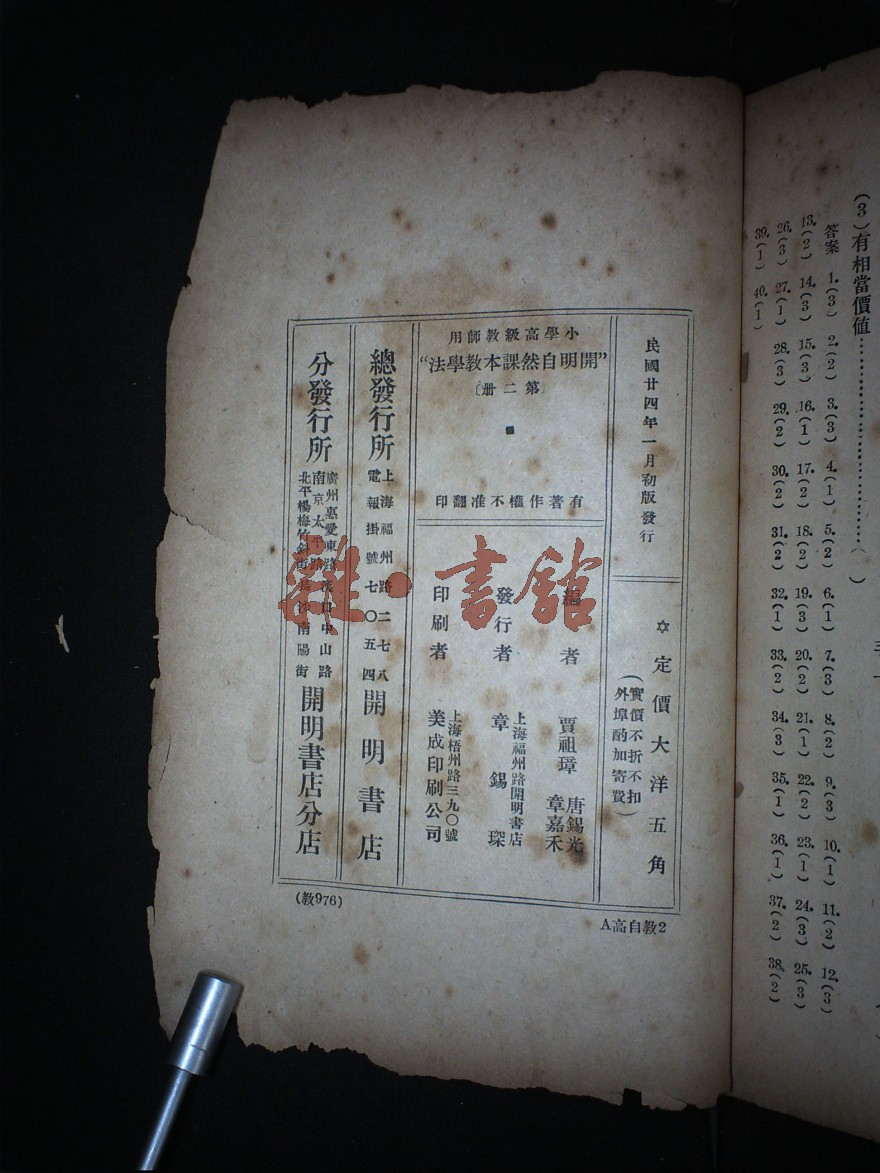 (3)有相當價値……………………(　)
答案 1.(3) 2.(2) 3.(3) 4.(1) 5.(2) 6.(1) 7.(3) 8.(2) 9.(3) 10.(1) 11.(2) 12.(3)
13.(2) 14.(3) 15.(3) 16.(1) 17.(2) 18.(2) 19.(3) 20.(2) 21.(1) 22.(2) 23.(1) 24.(3) 25.(3)
26.(3) 27.(1) 28.(3) 29.(2) 30.(2) 31.(2) 32.(1) 33.(2) 34.(3) 35.(1) 36.(1) 37.(2) 38.(2)
39.(1) 40.(1)
民國廿四年一月初版發行
✡定價大洋五角
(實價不折不扣
外埠酌加寄費)
小學高級教師用
“開明自然課本教學法”
〔第二册〕
有著作權不准翻印
編者 賈祖璋 唐錫光 章嘉禾
發行者 章錫琛
上海福州路開明書店
印刷者 美成印刷公司
上海梧州路三九〇號
總發行所 上海福州路二七八 開明書店
電報掛號七〇五四
分發行所 廣州惠愛東路漢口中山路
南京太平路長沙南陽街
北平楊梅竹斜街
開明書店分店
(教976)
A高自教2
雜·書館